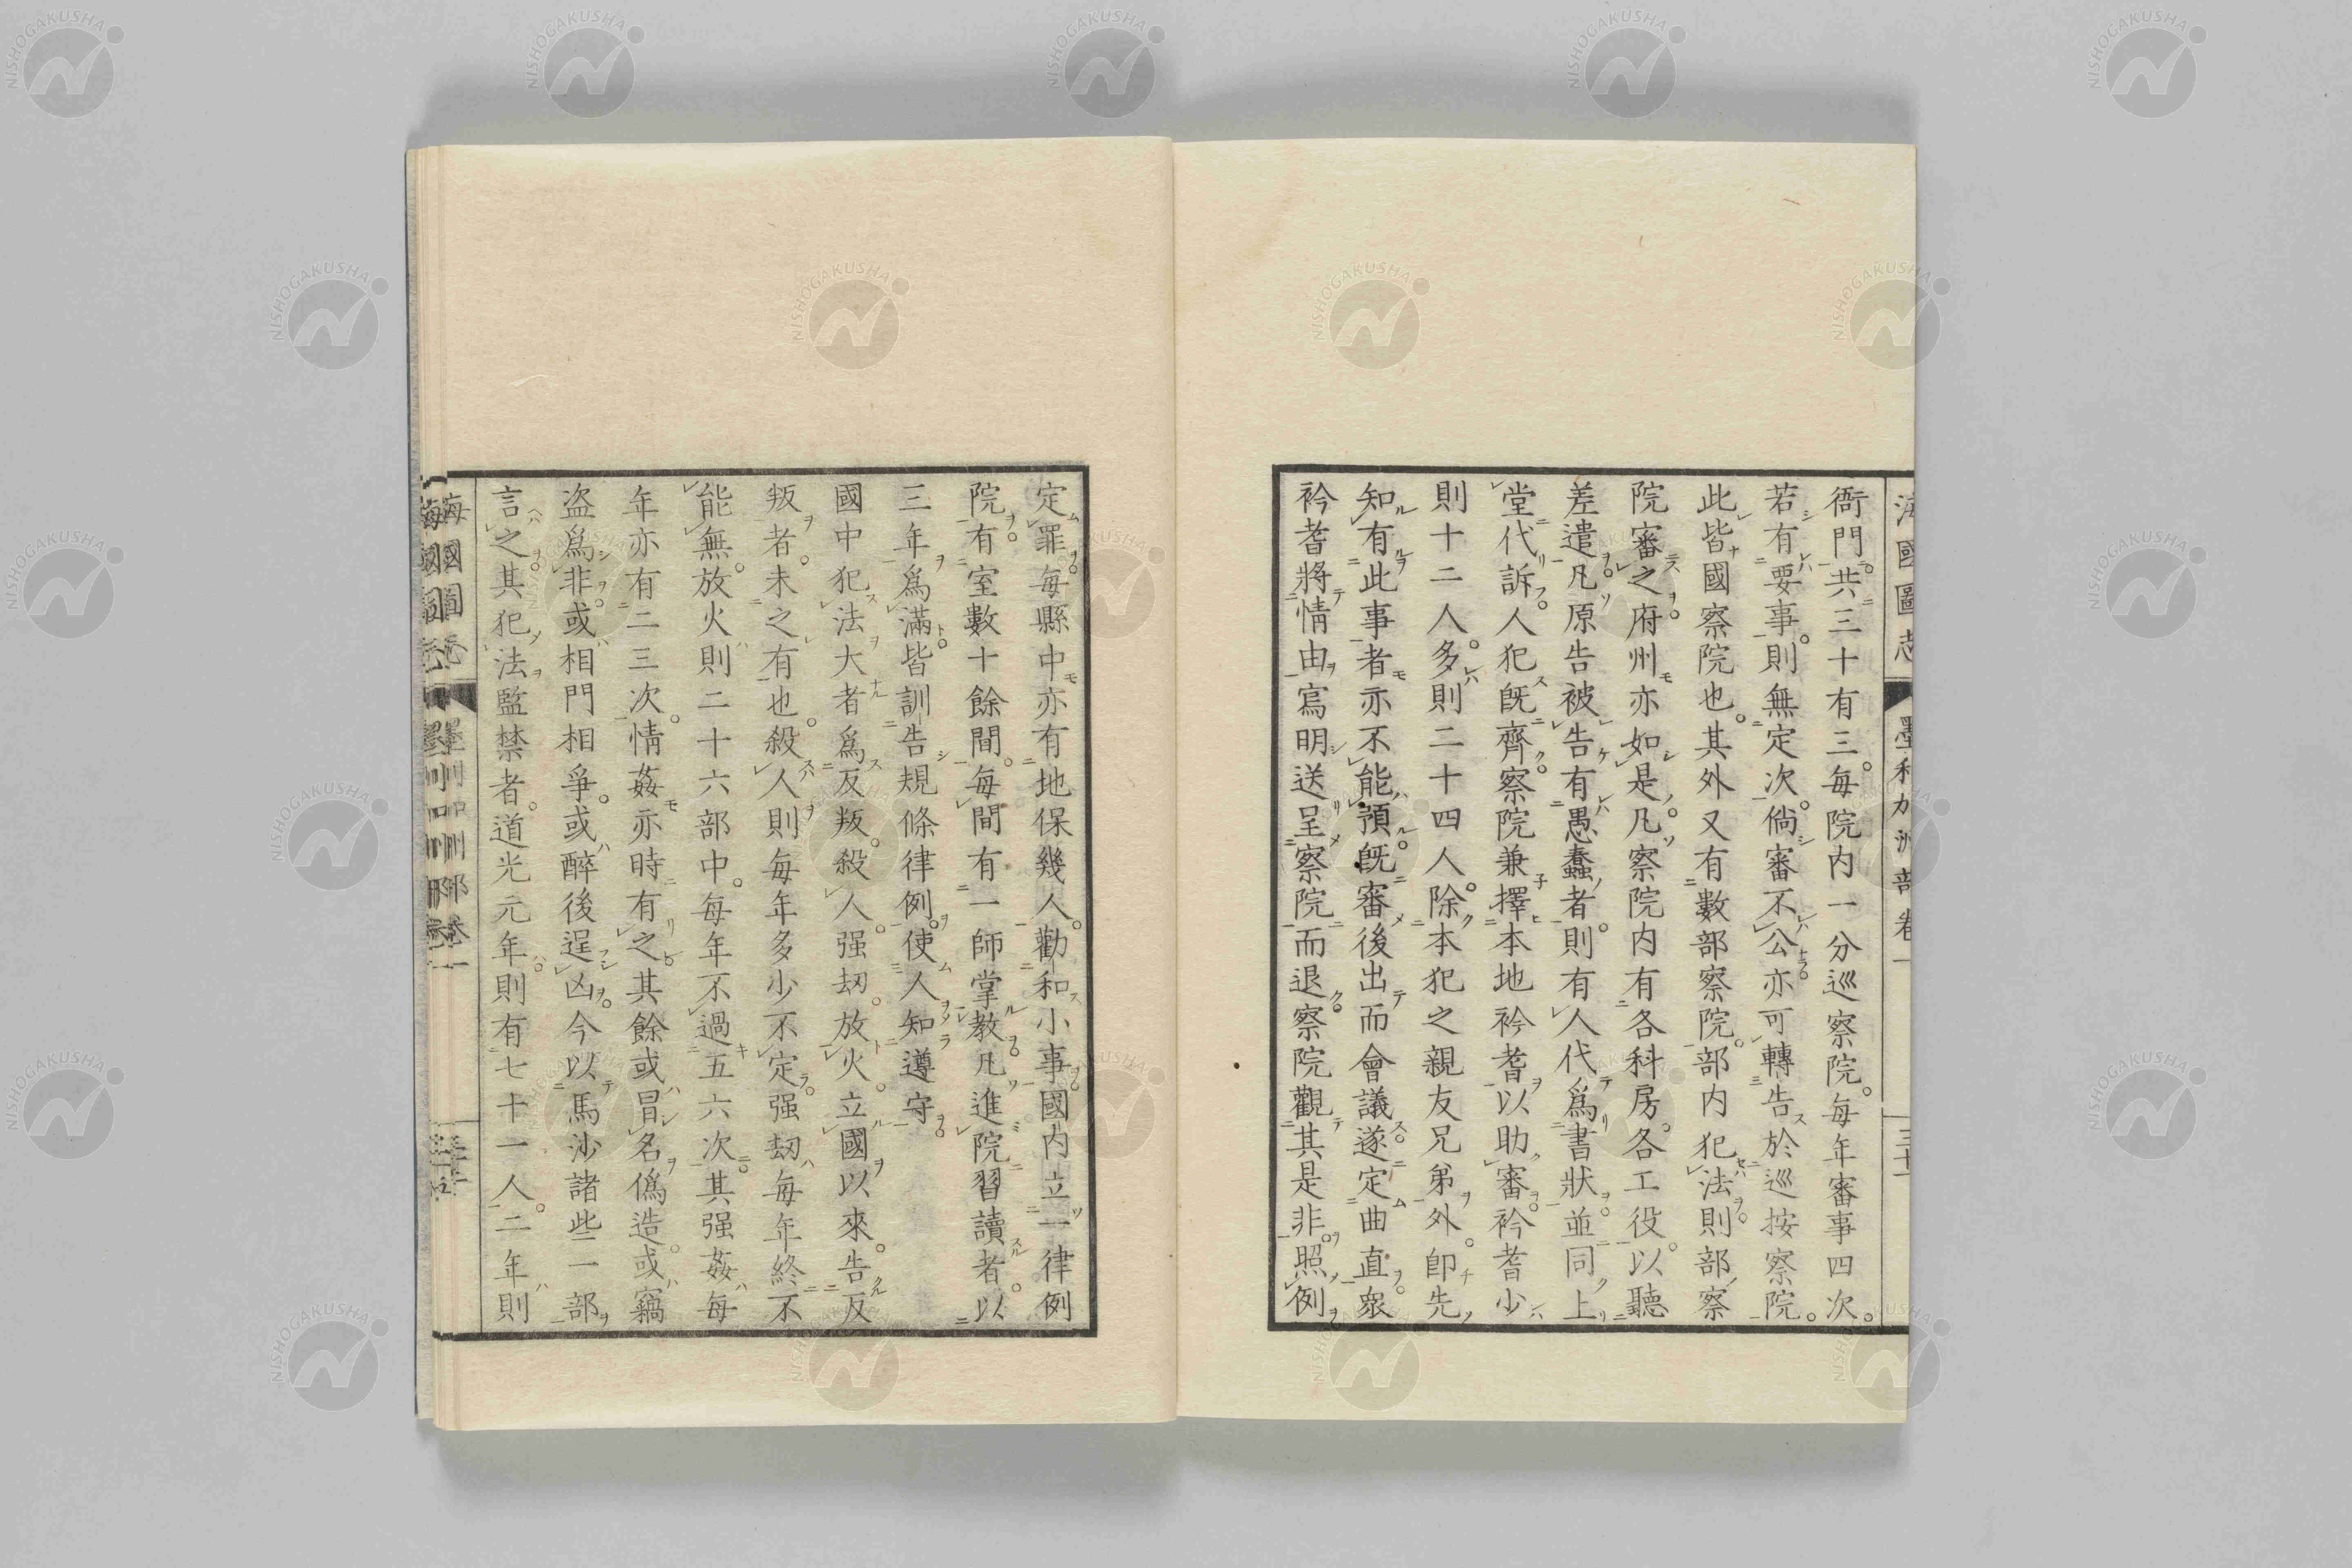 衙門共三十有三。每院内一分巡察院。每年審事四次。
若有要事。則無定次。倘審不公亦可轉告於巡按察院。
此皆國察院也。其外又有數部察院。部内犯法則部察
院審之。府州亦如是。凡察院内有各科房。各工役。以聽
差遣。凡原告被告有愚蠢者。則有人代爲書狀。並同上
堂代訴。人犯既齊。察院兼擇本地衿耆以助審。衿耆少
則十二人。多則二十四人。除本犯之親友兄弟外。卽先
知有此事者亦不能預。既審後出而會議。遂定曲直。衆
衿耆將情由寫明送呈察院而退。察院觀其是非。照例
定罪。每縣中亦有地保幾人。勸和小事。國内立一律例
院。有室數十餘間。每間有一師掌教。凡進院習讀者。以
三年爲滿。皆訓告規條律例。使人知遵守。
國中犯法大者爲反叛。殺人。强刼。放火。立國以來。告反
叛者。未之有也。殺人則每年多少不定。强刼每年終不
能無。放火則二十六部中。每年不過五六次。其强姦每
年亦有二三次。情姦亦時有之。其餘或冒名僞造。或竊
盗爲非。或相鬥相爭。或醉後逞凶。今以馬沙諸些一部
言之。其犯法監禁者。道光元年。則有七十一人。二年則
海國圖志
墨利加洲部卷一
三十一
NISHOGAKUSHA